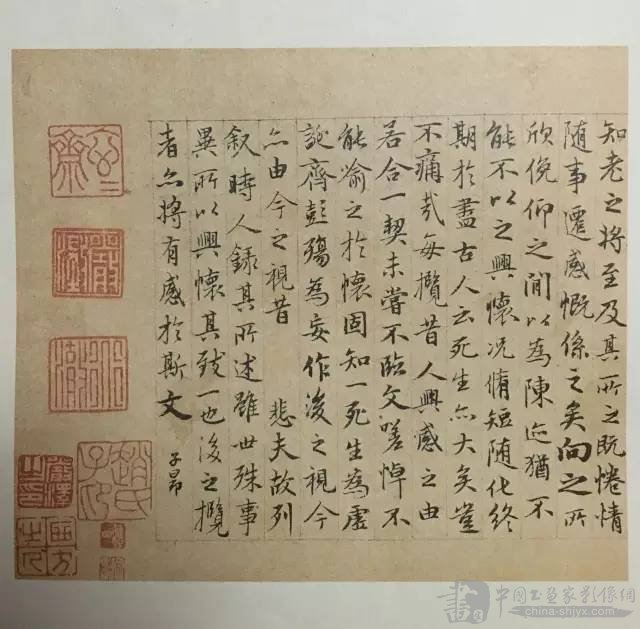 知老之将至及其所之既惓情
随事遷感慨係之矣向之所
欣俛仰之間以為陳迹猶不
能不以之興懷况脩短随化終
期於盡古人云死生亦大矣豈
不痛哉每攬昔人興感之由
若合一契未嘗不臨文嗟悼不
能喻之於懷固知一死生為虛
誕齊彭殤為妄作後之視今
亦由今之視昔 悲夫故列
叙時人録其所述雖世殊事
異所以興懷其致一也後之攬
者亦将有感於斯文
子昂
趙氏子昂
書
中國書畫家影像網
china-shjyx.com